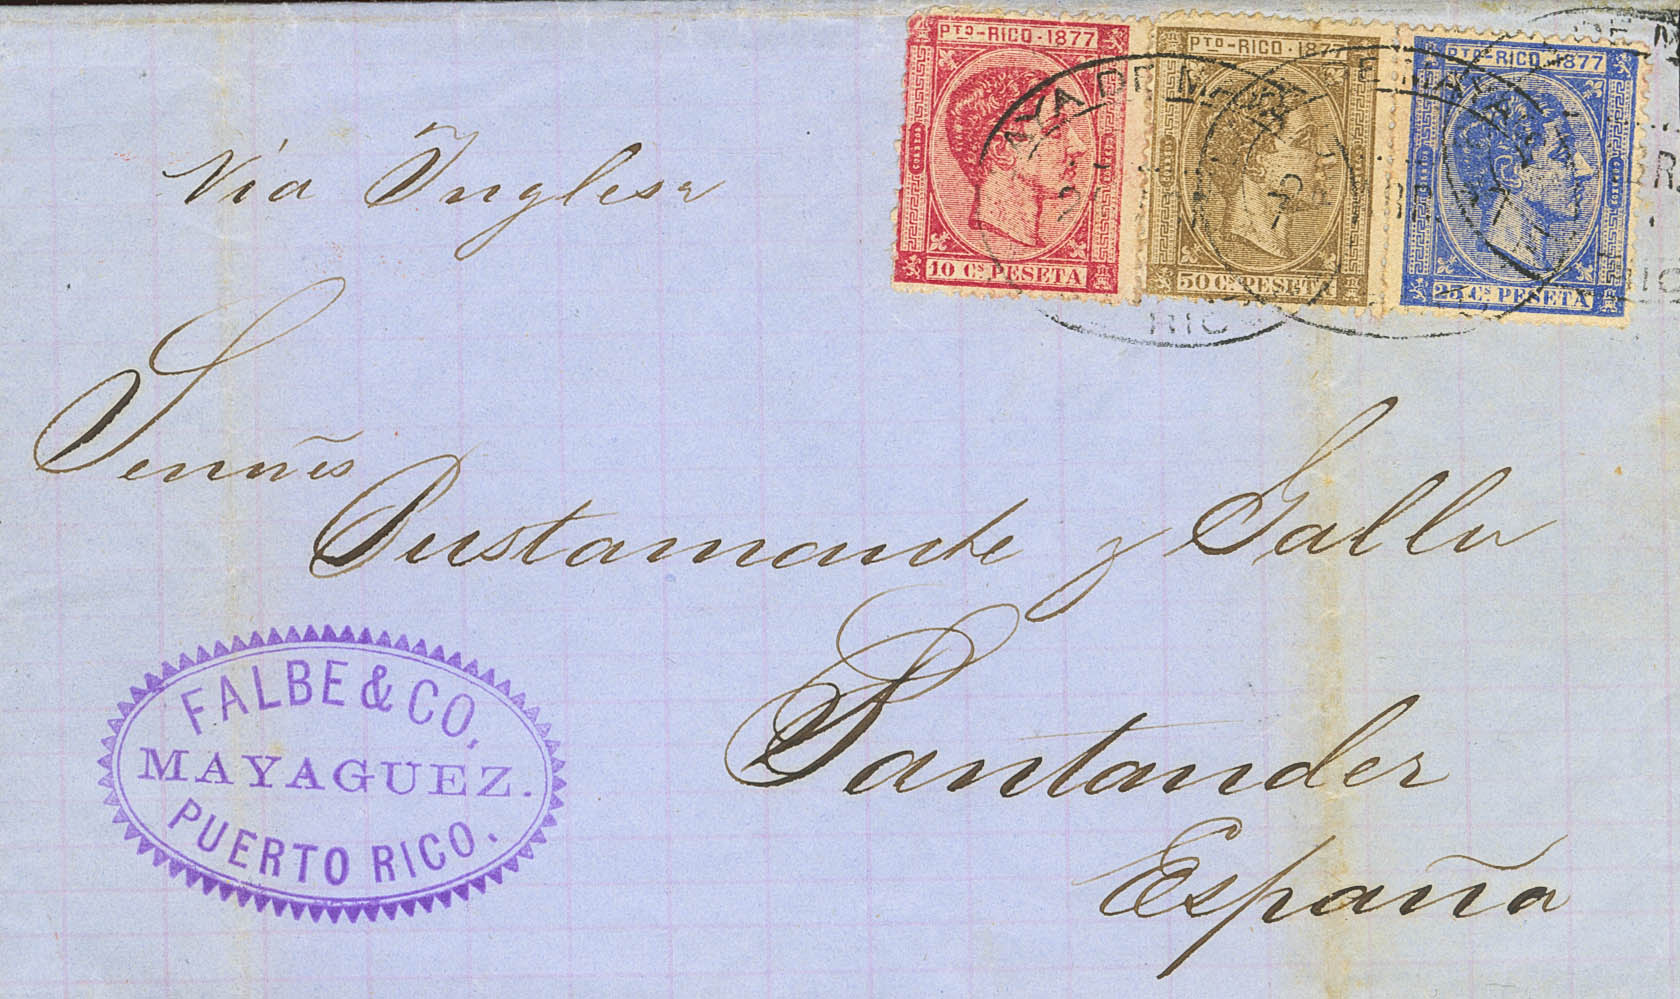 PTO-RICO-1877
CORREOS
CORREOS
10 Cs PESETA
PTO-RICO-1877
50 Cs PESETA
PTO-RICO-1877
CORREOS
25 Cs PESETA
RIC
Via Inglesa
Señres
Bustamante y Gallo
Santander
España
FALBE & CO.
MAYAGUEZ.
PUERTO RICO.